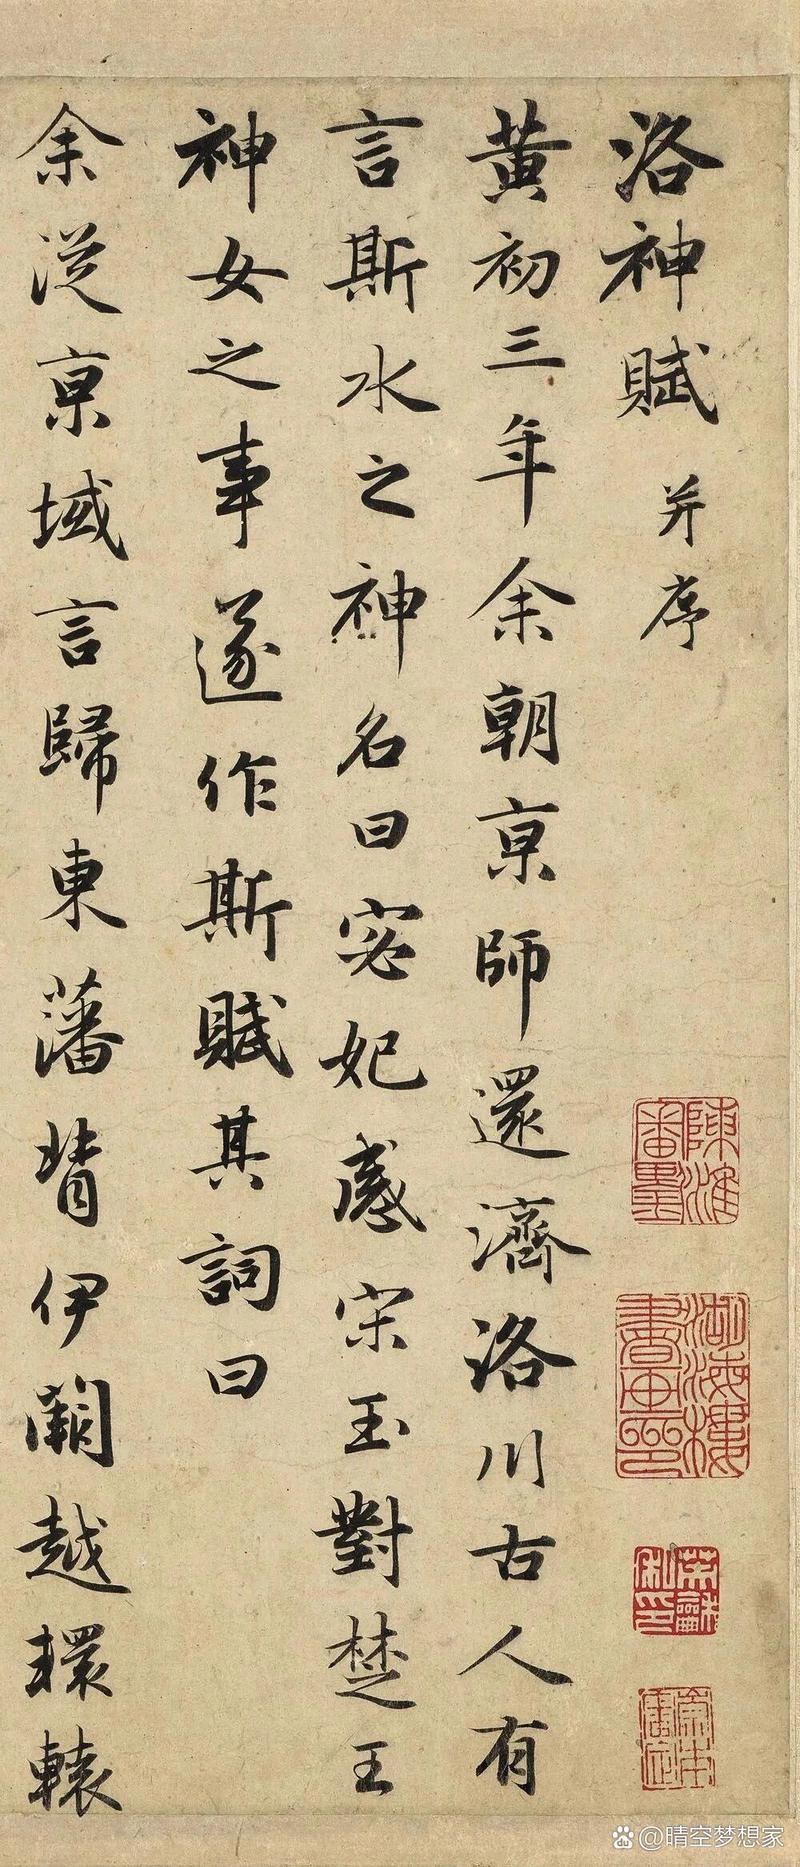 洛神賦 并序
黄初三年余朝京師還濟洛川古人有
言斯水之神名曰宓妃感宋玉對楚王
神女之事遂作斯賦其詞曰
余從京域言歸東藩背伊闕越轘轅
陳淮審墨
書畫印
私印
@晴空梦想家